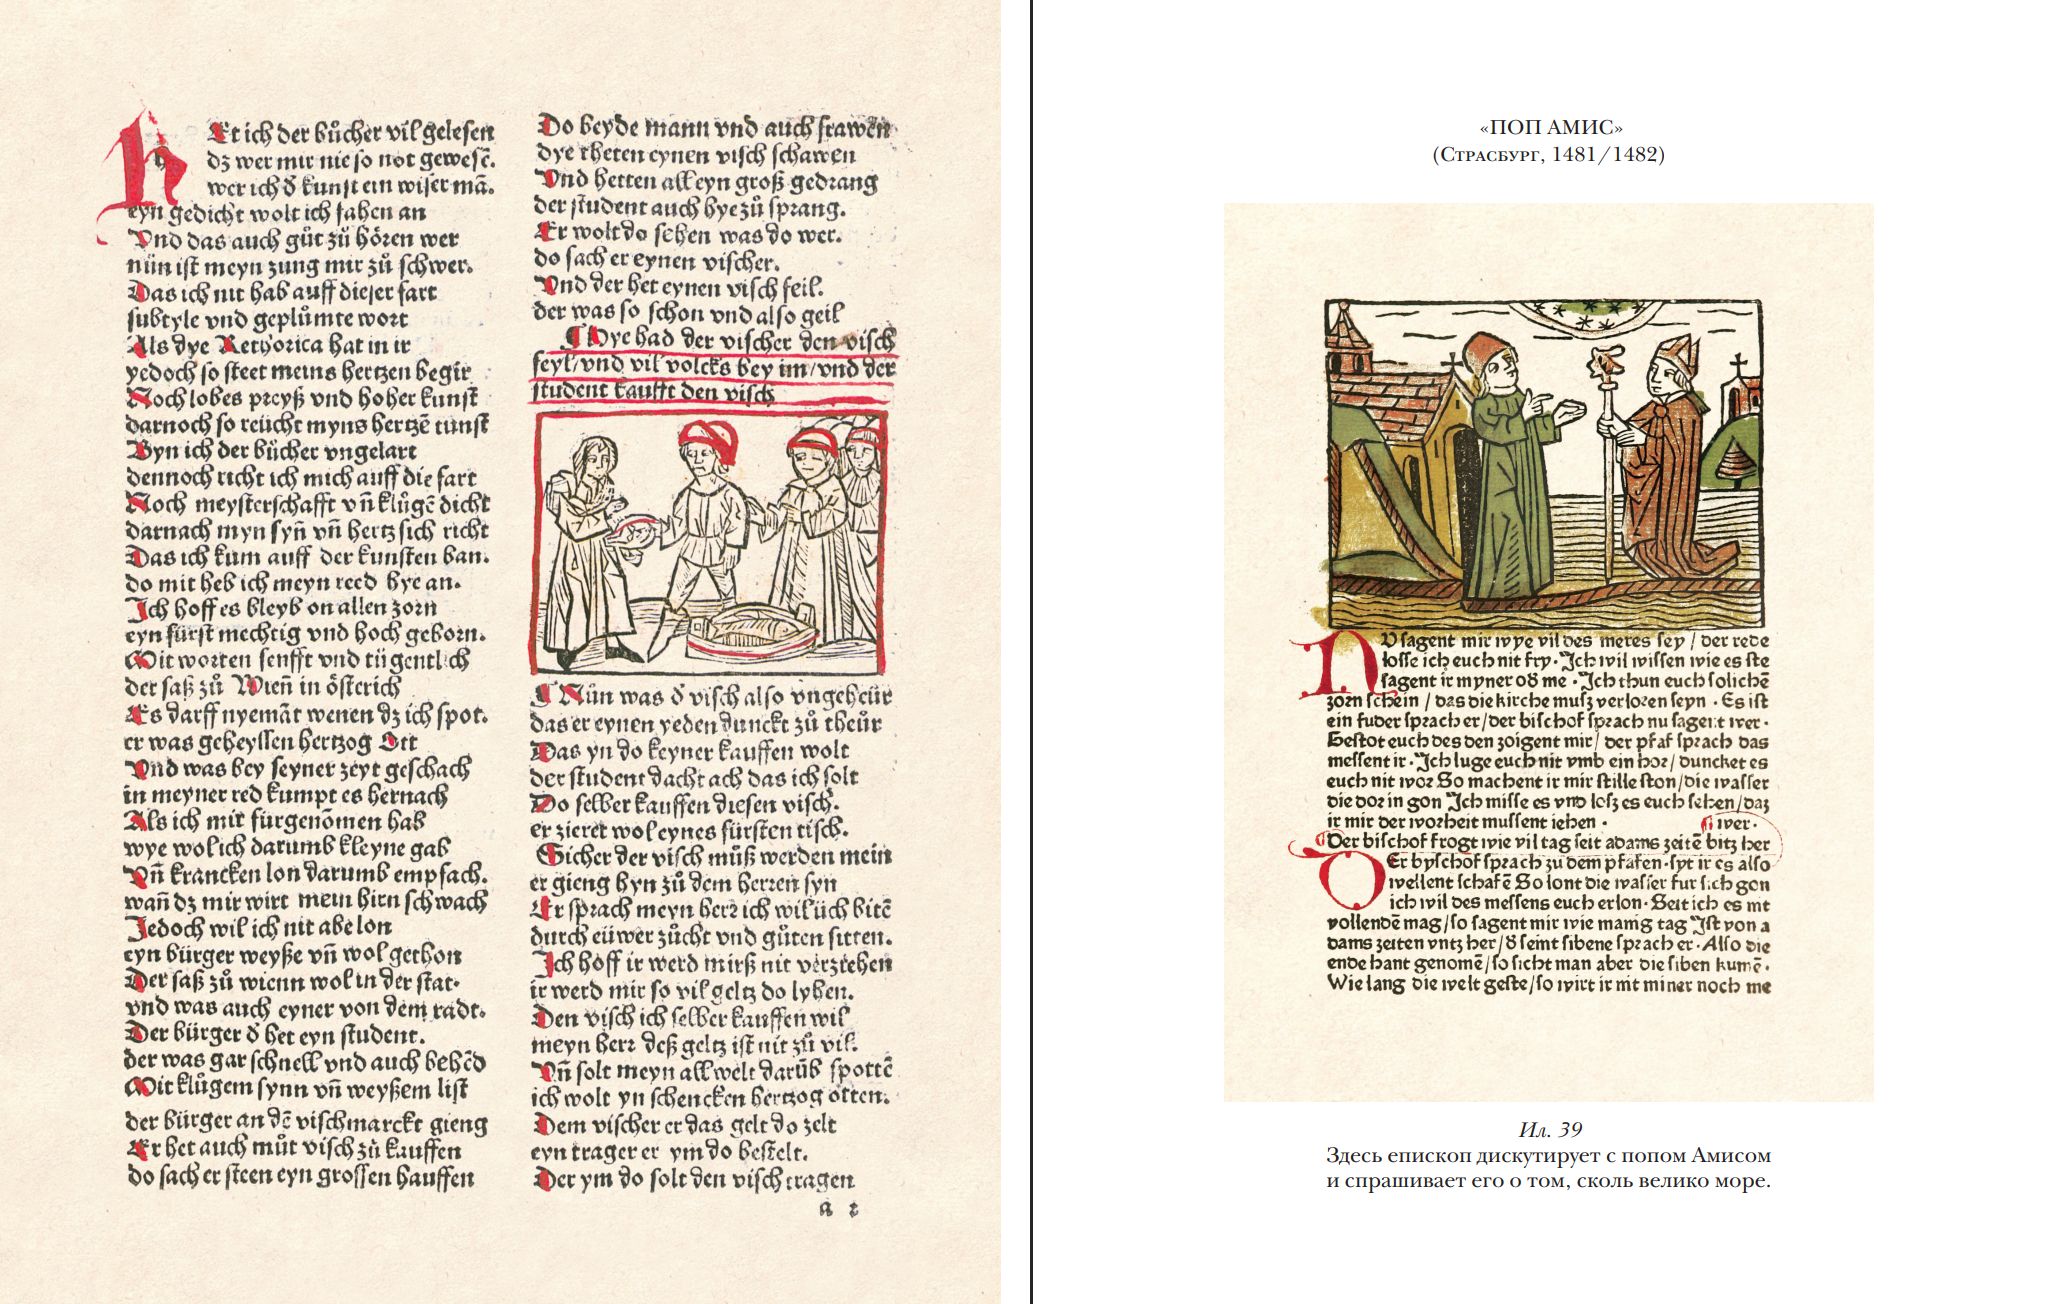 Et ich der bůcher vil gelesen
dz wer mir nie so not gewesē.
wer ich d̄ kunst ein wiser mā.
eyn gedicht wolt ich fahen an
Vnd das auch gůt zů hören wer
nün ist meyn zung mir zů schwer.
Das ich nit hab auff dieser fart
subtyle vnd geplůmte wort
Als dye Rethorica hat in ir
yedoch so steet meins hertzen begir
Noch lobes preyß vnd hoher kunst
darnoch so reücht myns hertzē tunst
Byn ich der bücher vngelart
dennoch richt ich mich auff die fart
Noch meysterschafft vn̄ klůgē dicht
darnach myn syn̄ vn̄ hertz sich richt
Das ich kum auff der kunsten ban.
do mit heb ich meyn reed hye an.
Ich hoff es bleyb on allen zorn
eyn fürst mechtig vnd hoch geborn.
Mit worten senfft vnd tügentlich
der saß zů Wien̄ in österich
Es darff nyemāt wenen dz ich spot.
er was geheyssen hertzog Ott
Vnd was bey seyner zeyt geschach
in meyner red kumpt es hernach
Als ich mir fürgenōmen hab
wye wol ich darumb kleyne gab
Vn̄ krancken lon darumb empfach.
wan̄ dz mir wirt mein hirn schwach
Jedoch wil ich nit abe lon
eyn bürger weyße vn̄ wol gethon
Der saß zů wienn wol in der stat.
vnd was auch eyner von dem radt.
Der bürger d̄ het eyn student.
der was gar schnell vnd auch behēd
Mit klůgem synn vn̄ weyßem list
der bürger an dē vischmarckt gieng
Er het auch můt visch zů kauffen
do sach er steen eyn grossen hauffen
Do beyde mann vnd auch frawen
dye theten eynen visch schawen
Vnd hetten all eyn groß gedrang
der student auch hye zů sprang.
Er wolt do sehen was do wer.
do sach er eynen vischer.
Vnd der het eynen visch feil.
der was so schon vnd also geil
¶ Hye had der vischer den visch
feyl/vnd vil volcks bey im/vnd der
student kaufft den visch
¶ Nün was d̄ visch also vngeheür
das er eynen yeden dunckt zů theür
Das yn do keyner kauffen wolt
der student dacht ach das ich solt
Do selber kauffen diesen visch.
er zieret wol eynes fürsten tisch.
Sicher der visch můß werden mein
er gieng hyn zů dem herren syn
Er sprach meyn herr ich wil üch bitē
durch eüwer zücht vnd gůten sitten.
Ich hoff ir werd mirß nit verzeihen
ir werd mir so vil geltz do lyhen.
Den visch ich selber kauffen wil
meyn herr deß geltz ist nit zů vil.
Vn̄ solt meyn all welt darüb spottē
ich wolt yn schencken hertzog otten.
Dem vischer er das gelt do zelt
eyn trager er ym do bestelt.
Der ym do solt den visch tragen
a 2
«ПОП АМИС»
(Страсбург, 1481/1482)
NV sagent mir wye vil des meres sey / der rede
losse ich euch nit fry. Ich wil wissen wie es ste
sagent ir myner od̄ me. Ich thun euch solichē
zorn schein / das die kirche musz verloren seyn. Es ist
ein fuder sprach er/der bischof sprach nu sagent wer.
Gestot euch des den zoigent mir/ der pfaf sprach das
messent ir. Ich luge euch nit vmb ein hor/ duncket es
euch nit wor So machent ir mir stille ston/die wasser
die dor in gon Ich misse es vnd losz es euch sehen/daz
ir mir der worheit mussent iehen. ¶ wer.
Der bischof frogt wie vil tag seit adams zeitē bitz her
DEr byschof sprach zu dem pfafen. syt ir es also
wellent schafē So lont die wasser fur sich gon
ich wil des messens euch erlon. Seit ich es nit
vollendē mag/so sagent mir wie manig tag Ist von a
dams zeiten vntz her/d̄ seint sibene sprach er. Also die
ende hant genomē/so sicht man aber die siben kumē.
Wie lang die welt geste/so wirt ir nit miner noch me
Ил. 39
Здесь епископ дискутирует с попом Амисом
и спрашивает его о том, сколь велико море.